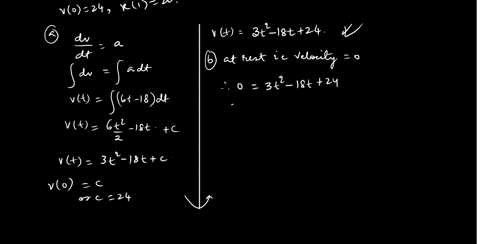 v(0)=24, x(1)=20.
(a) dv/dt = a
∫dv = ∫a dt
v(t) = ∫(6t-18)dt
v(t) = 6t²/2 -18t. +c
v(t) = 3t²-18t+c.
v(0) = c
or c = 24
v(t) = 3t²-18t+24.
(b) at rest ie velocity = 0
∴ 0 = 3t²-18t+24